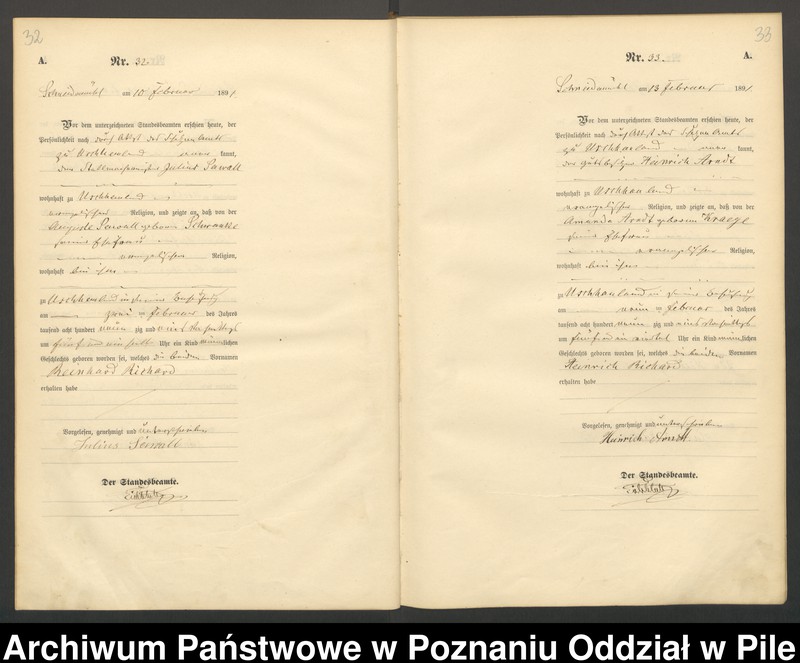 32
A.
Nr. 32.
Schneidemühl am 10 Februar 1891
Vor dem unterzeichneten Standesbeamten erschien heute, der
Persönlichkeit nach durch Attest des Schulzenamts
zu Uschhauland kannt,
der Julius Sawall
wohnhaft zu Uschhauland
evangelischer Religion, und zeigte an, daß von der
Auguste Sawall geborene Schwanke
seiner Ehefrau
evangelischer Religion,
wohnhaft bei ihm
zu Uschhauland in seiner Behausung
am zwei ten Februar des Jahres
tausend acht hundert neun zig und eins Vormittags
um fünf und einhalb Uhr ein Kind männlichen
Geschlechts geboren worden sei, welches die beiden Vornamen
Reinhard Richard
erhalten habe
Vorgelesen, genehmigt und unterschrieben
Julius Sawall
Der Standesbeamte.
33
Nr. 33.
A.
Schneidemühl am 13 Februar 1891
Vor dem unterzeichneten Standesbeamten erschien heute, der
Persönlichkeit nach durch Attest des Schulzenamts
zu Uschhauland kannt,
der Heinrich Arndt
wohnhaft zu Uschhauland
evangelischer Religion, und zeigte an, daß von der
Amanda Arndt geborene Kraege
seiner Ehefrau
evangelischer Religion,
wohnhaft bei ihm
zu Uschhauland in seiner Behausung
am neun ten Februar des Jahres
tausend acht hundert neun zig und eins Vormittags
um fünf und ein viertel Uhr ein Kind männlichen
Geschlechts geboren worden sei, welches die beiden Vornamen
Heinrich Richard
erhalten habe
Vorgelesen, genehmigt und unterschrieben
Heinrich Arndt
Der Standesbeamte.
Archiwum Państwowe w Poznaniu Oddział w Pile